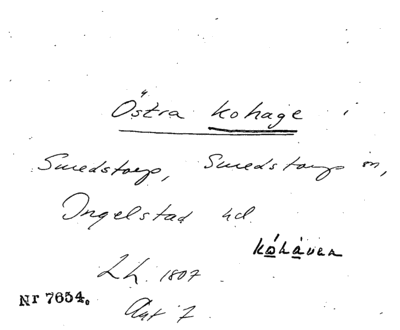 Östra kohage i
Smedstorp, Smedstorps sn,
Ingelstad hd.
kóhàven
Lh. 1807
Nr 7654.
Akt 7